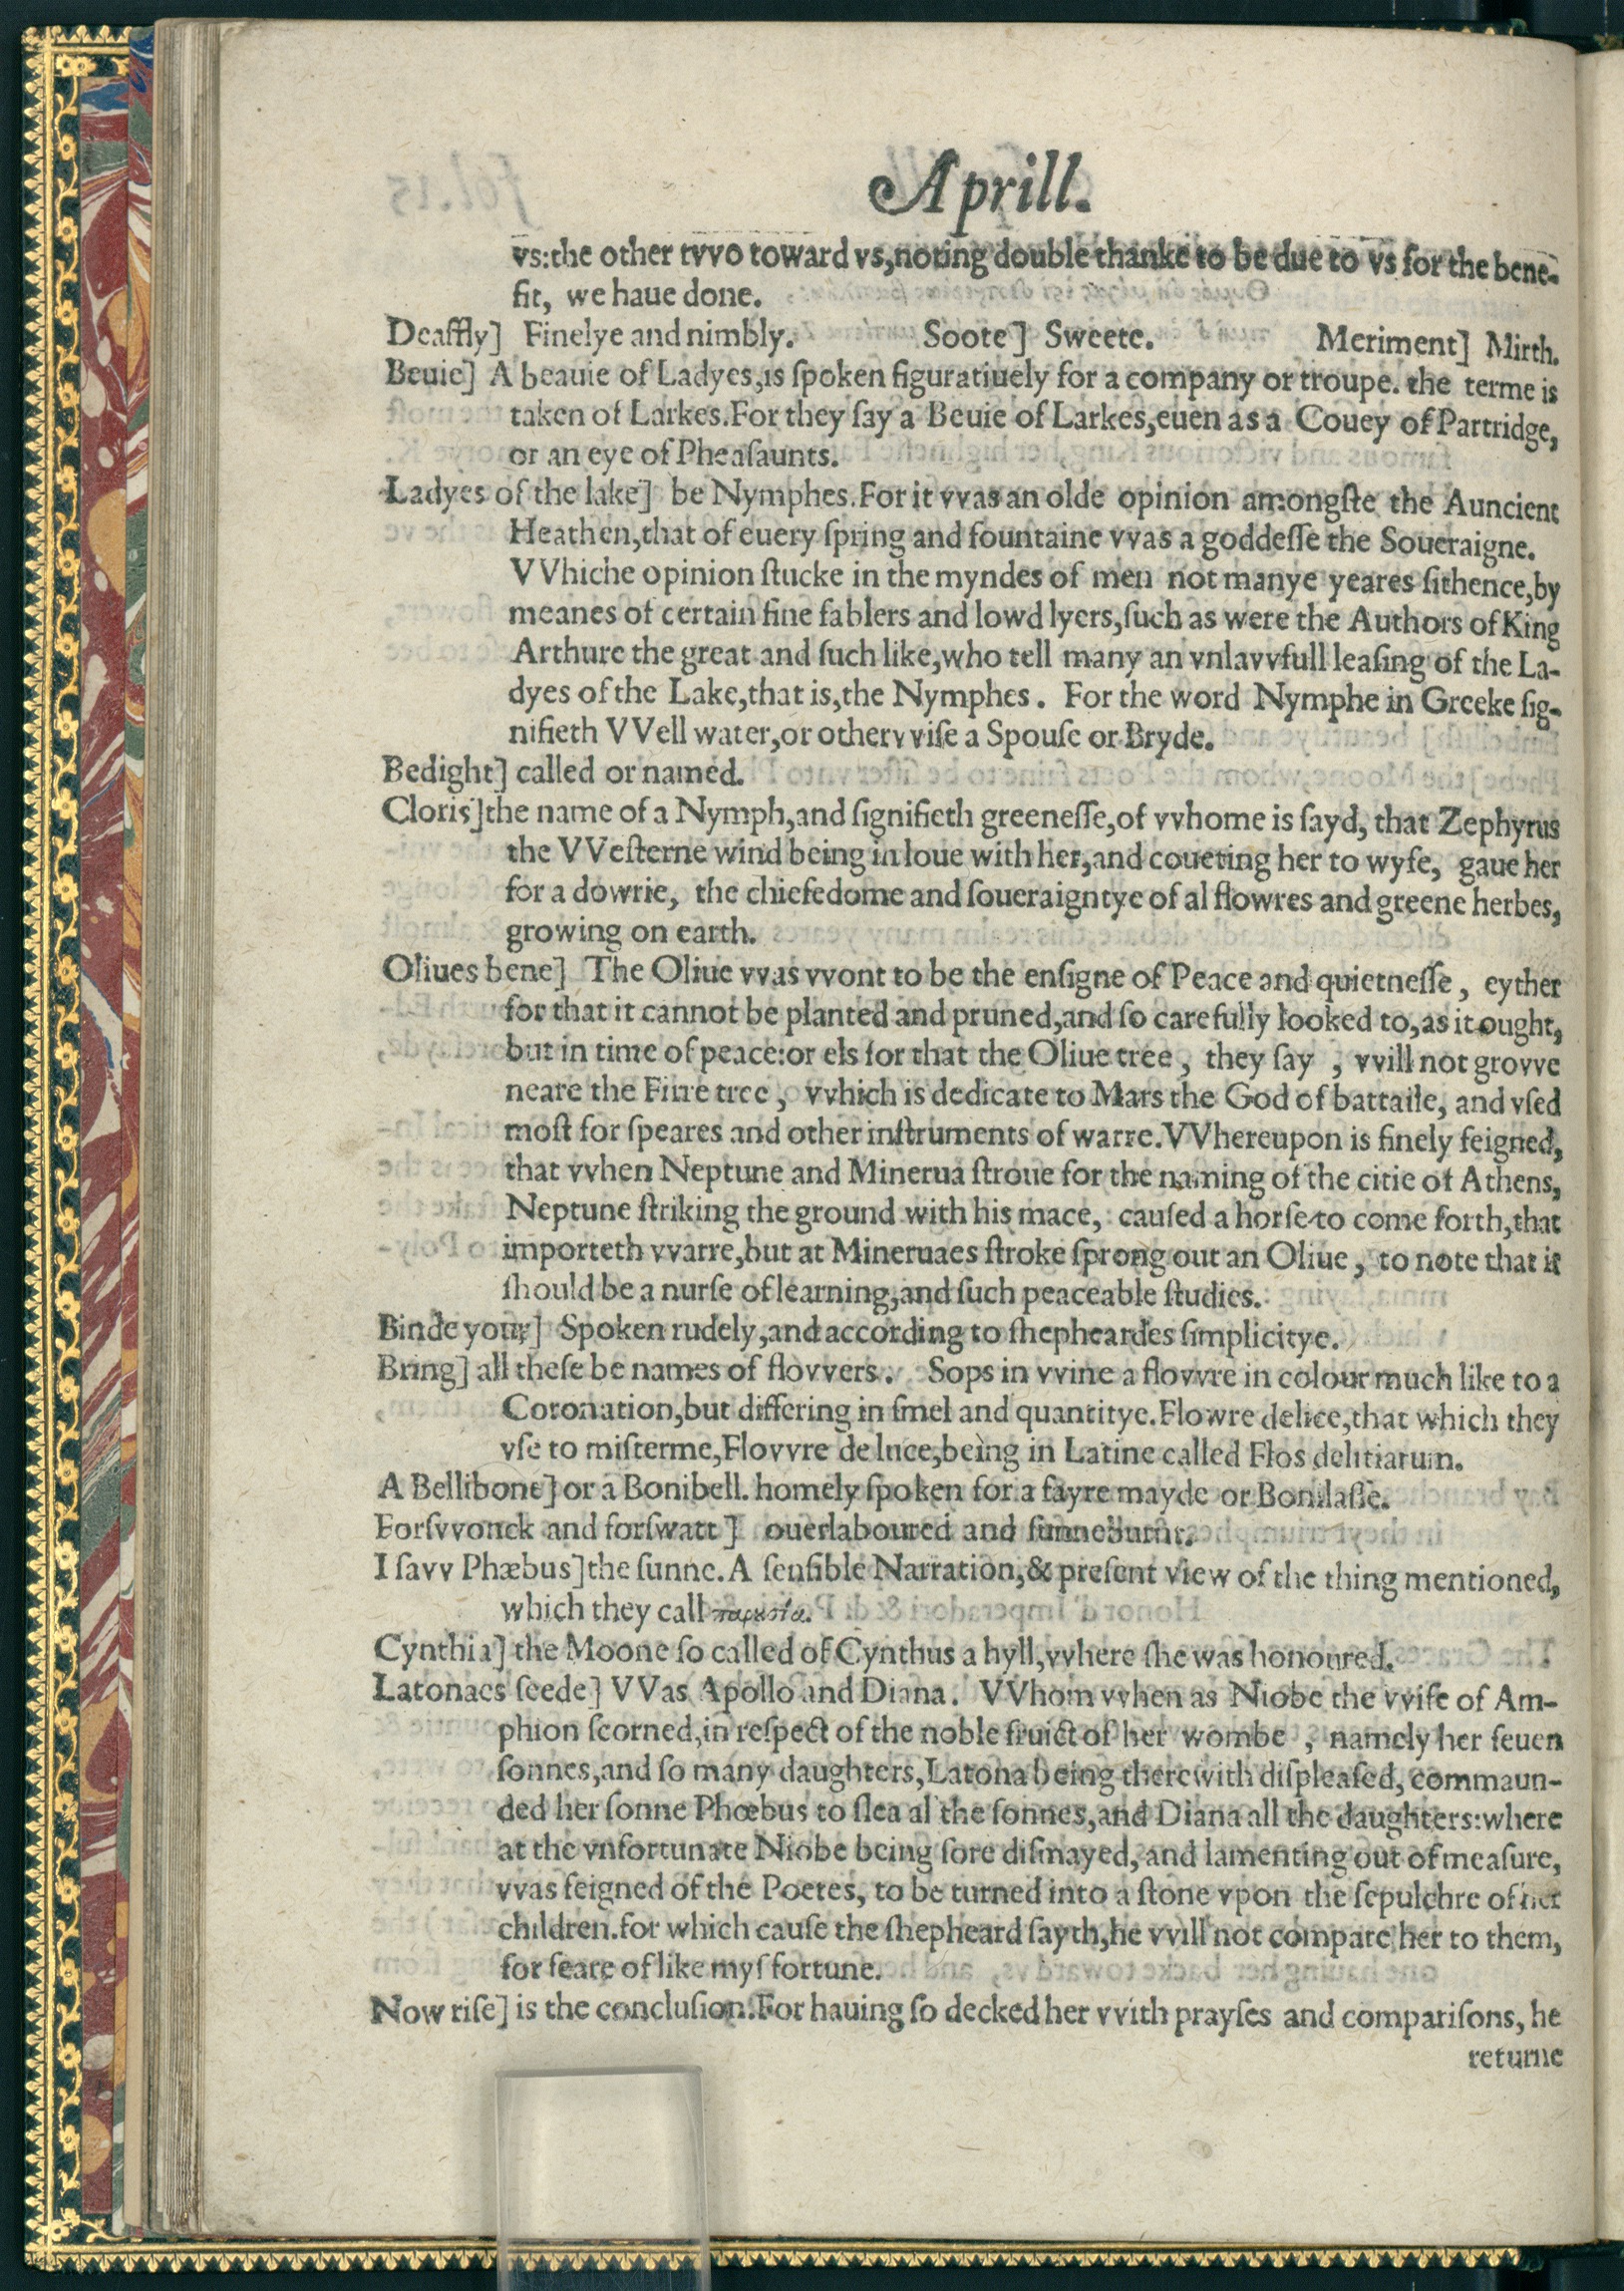 Aprill.
vs:the other tvvo toward vs,noting double thanke to be due to vs for the bene-
fit, we haue done.
Deaffly] Finelye and nimbly. Soote] Sweete. Meriment] Mirth.
Beuie] A beauie of Ladyes,is ſpoken figuratiuely for a company or troupe. the terme is
taken of Larkes.For they ſay a Beuie of Larkes,euen as a Couey of Partridge,
or an eye of Pheaſaunts.
Ladyes of the lake] be Nymphes.For it vvas an olde opinion amongſte the Auncient
Heathen,that of euery ſpring and fountaine vvas a goddeſſe the Soueraigne.
VVhiche opinion ſtucke in the myndes of men not manye yeares ſithence,by
meanes of certain fine fablers and lowd lyers,ſuch as were the Authors of King
Arthure the great and ſuch like,who tell many an vnlavvfull leaſing of the La-
dyes of the Lake,that is,the Nymphes. For the word Nymphe in Greeke ſig-
nifieth VVell water,or othervviſe a Spouſe or Bryde.
Bedight] called or named.
Cloris]the name of a Nymph,and ſignifieth greeneſſe,of vvhome is ſayd, that Zephyrus
the VVeſterne wind being in loue with her,and coueting her to wyfe, gaue her
for a dowrie, the chiefedome and ſoueraigntye of al flowres and greene herbes,
growing on earth.
Oliues bene] The Oliue vvas vvont to be the enſigne of Peace and quietneſſe, eyther
for that it cannot be planted and pruned,and ſo carefully looked to,as it ought,
but in time of peace:or els for that the Oliue tree, they ſay , vvill not grovve
neare the Firre tree, vvhich is dedicate to Mars the God of battaile, and vſed
moſt for ſpeares and other inſtruments of warre.VVhereupon is finely feigned,
that vvhen Neptune and Minerua ſtroue for the naming of the citie of Athens,
Neptune ſtriking the ground with his mace, cauſed a horſe to come forth,that
importeth vvarre,but at Mineruaes ſtroke ſprong out an Oliue, to note that it
ſhould be a nurſe of learning,and ſuch peaceable ſtudies.
Binde your] Spoken rudely,and according to ſhepheardes ſimplicitye.
Bring] all theſe be names of flovvers. Sops in vvine a flovvre in colour much like to a
Coronation,but differing in ſmel and quantitye.Flowre delice,that which they
vſe to miſterme,Flovvre de luce,being in Latine called Flos delitiarum.
A Bellibone] or a Bonibell. homely ſpoken for a fayre mayde or Bonilaſſe.
Forſvvonck and forſwatt] ouerlaboured and ſunneburnt.
I ſavv Phæbus]the ſunne.A ſenſible Narration,& preſent view of the thing mentioned,
which they call παρουσία.
Cynthia] the Moone ſo called of Cynthus a hyll,vvhere ſhe was honoured.
Latonaes ſeede] VVas Apollo and Diana. VVhom vvhen as Niobe the vvife of Am-
phion ſcorned,in reſpect of the noble fruict of her wombe , namely her ſeuen
ſonnes,and ſo many daughters,Latona being therewith diſpleaſed, commaun-
ded her ſonne Phœbus to ſlea al the ſonnes,and Diana all the daughters:where
at the vnfortunate Niobe being ſore diſmayed, and lamenting out of meaſure,
vvas feigned of the Poetes, to be turned into a ſtone vpon the ſepulchre of her
children.for which cauſe the ſhepheard ſayth,he vvill not compare her to them,
for feare of like myſfortune.
Now riſe] is the concluſion.For hauing ſo decked her vvith prayſes and compariſons, he
returne